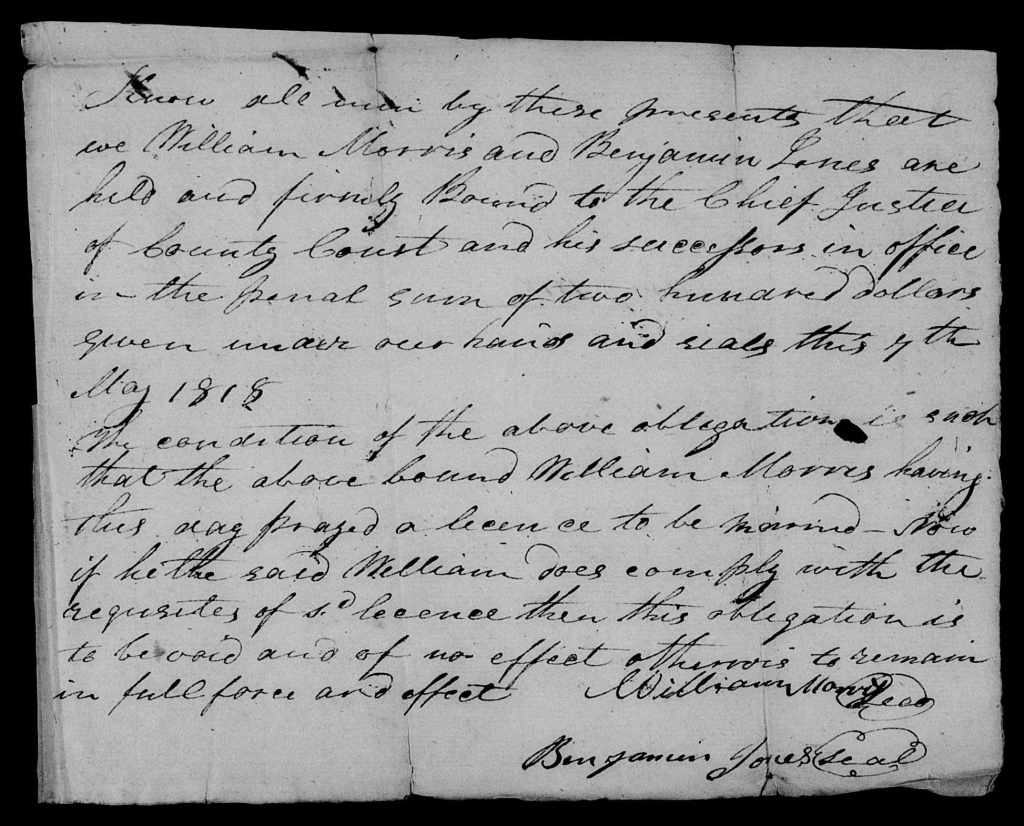 Know all men by these presents that
we William Morris and Benjamin Jones are
held and firmly Bound to the Chief Justice
of County Court and his successors in office
in the penal sum of two hundred dollars
given under our hands and seals this 7th
May 1818
The condition of the above obligation is such
that the above bound William Morris having
this day prayed a lecence to be married – Now
if he the said William does comply with the
requisites of sd lecence then this obligation is
to be void and of no effect otherwis to remain
in full force and effect William Morris Seal
Benjamin Jones Seal